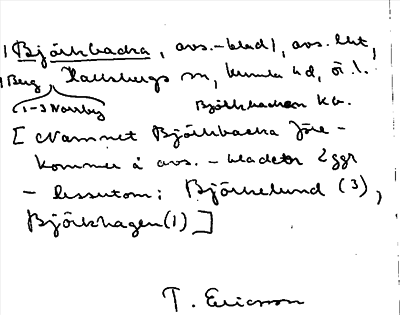 Björkbacka, avs.-blad 1, avs. lht,
1 Berg Hallsbergs sn, Kumla hd, ö.l.
1-3 Norrby Björkbackan kv.
[Namnet Björkbacka före-
kommer å avs.-bladet 2 ggr
- dessutom: Björkelund (3),
Björkhagen (1)]
T. Ericsson